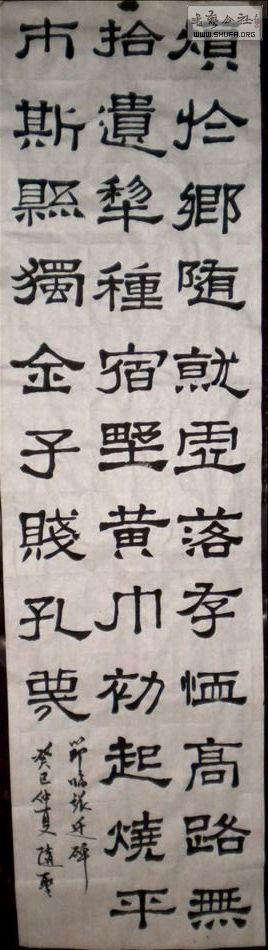 煩於鄉随就虛落存恤高路無
拾遺犁種宿野黃巾初起燒平
市斯縣獨全子賤孔蔑
節臨張迁碑
癸巳仲夏随
WWW.SHUFA.ORG